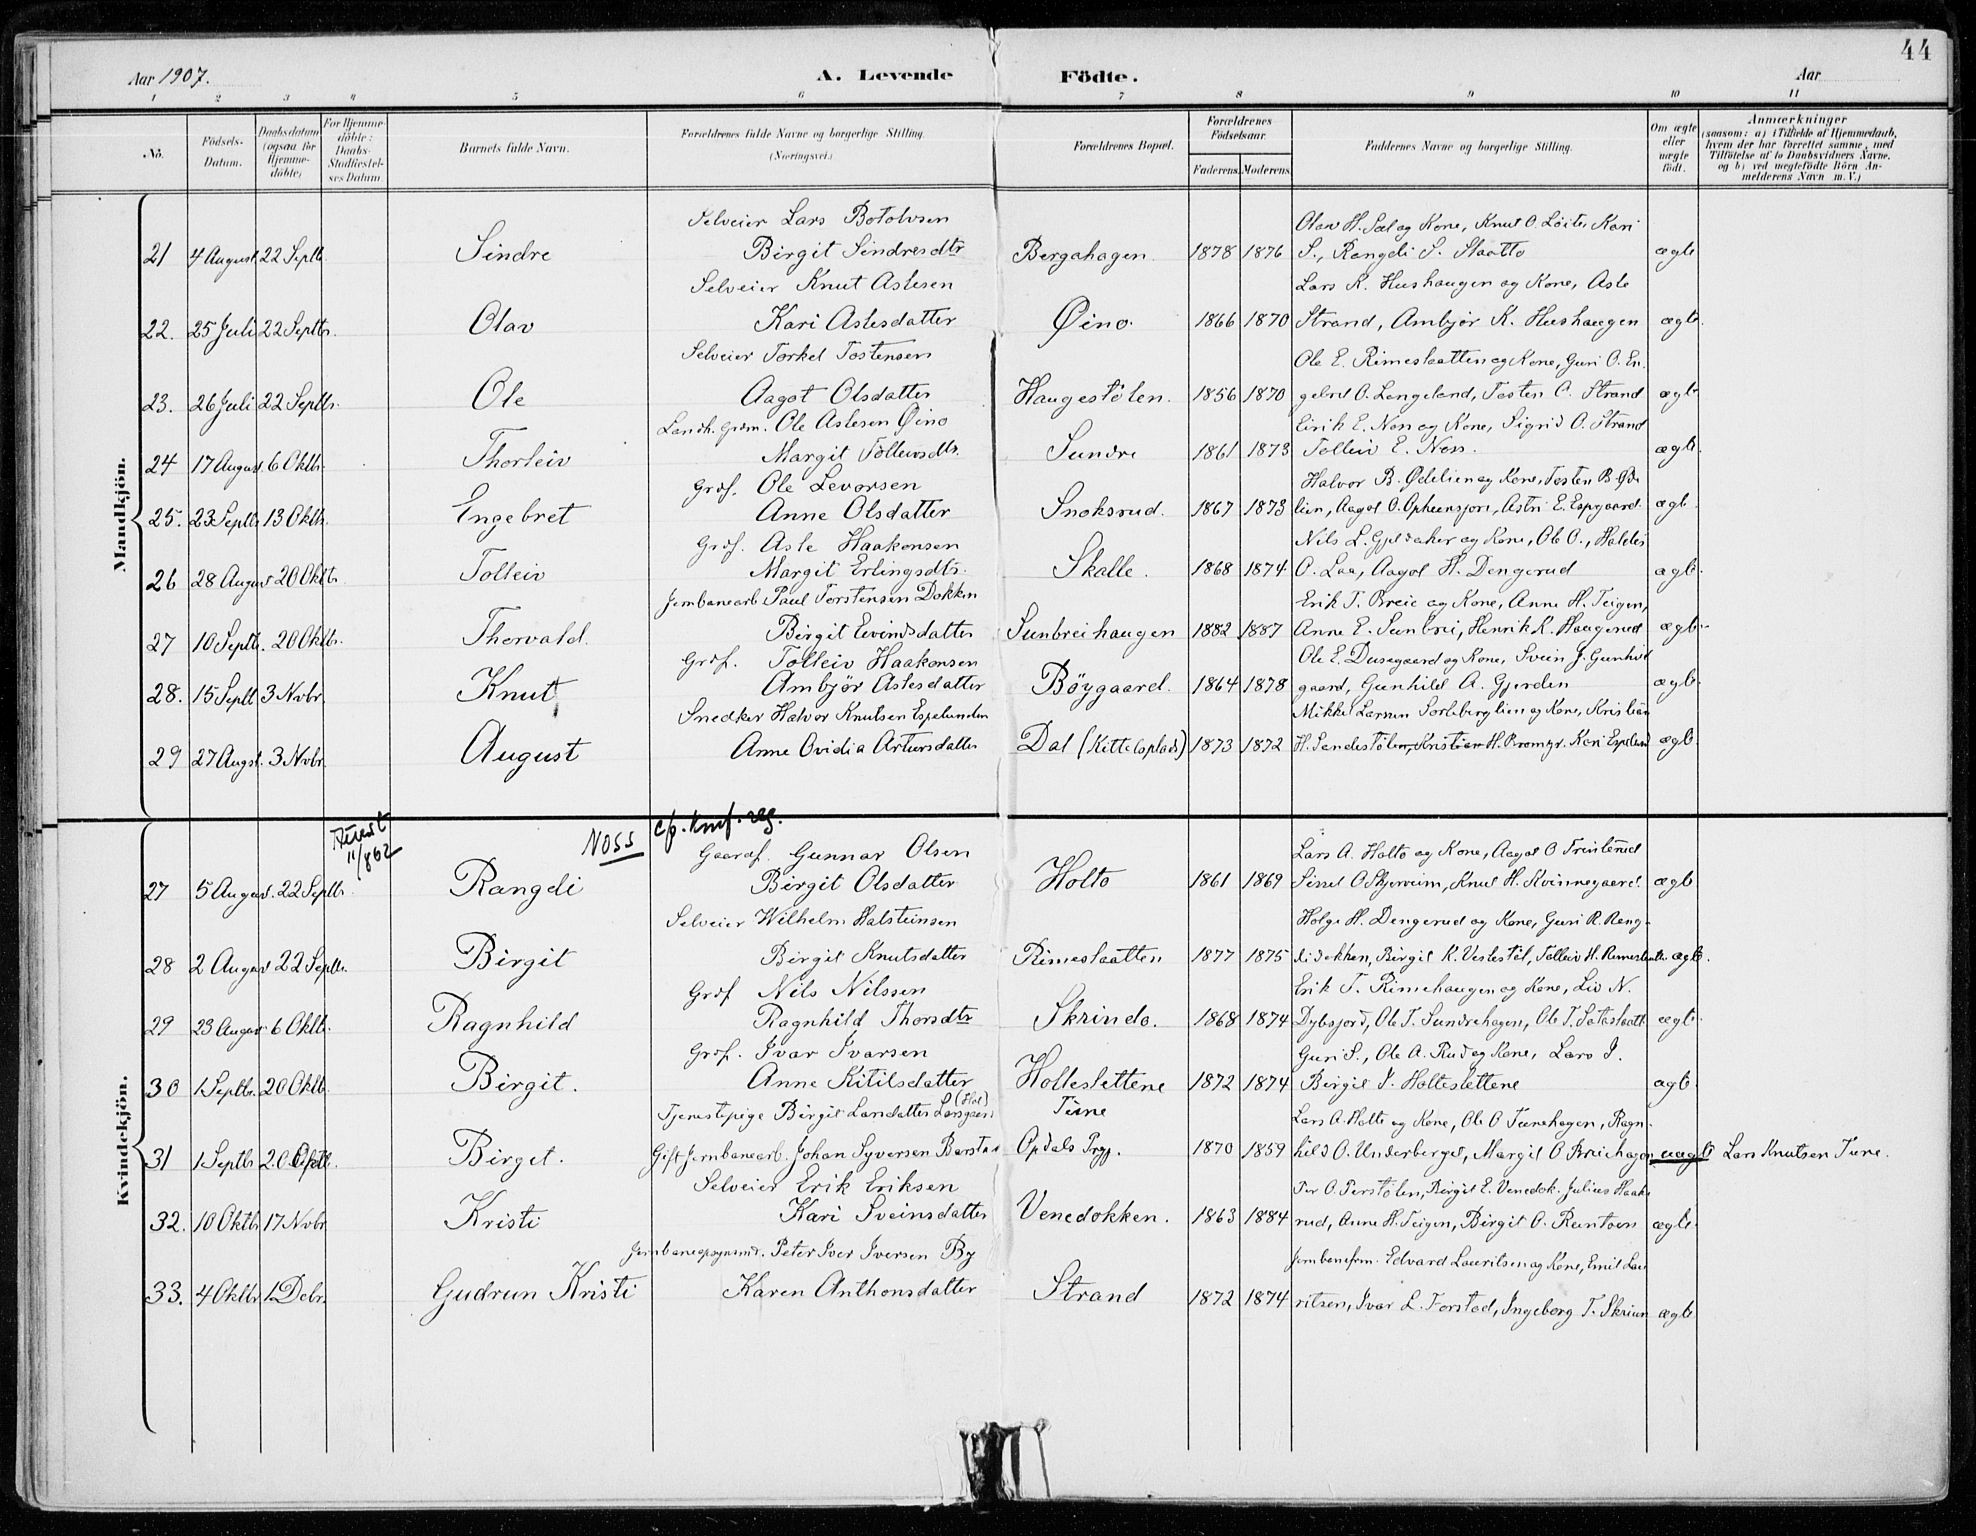 44
Aar 1907. A. Levende Födte. Aar
1 2 3 4 5 6 7 8 9 10 11
No. Födsels-Datum. Daabsdatum (ogsaa for Hjemme-döbte) For Hjemme-döbte: Daabs-Stadfæstel-ses Datum Barnets fulde Navn. Forældrenes fulde Navne og borgerlige Stilling (Næringsvei.) Forældrenes Bopæl. Forældrenes Födselsaar. Faderens. Moderens. Faddernes Navne og borgerlige Stilling. Om ægte eller uægte födt. Anmærkninger (saasom: a) i Tilfælde af Hjemmedaab, hvem der har forrettet samme, med Tilföielse af to Daabsvidners Navne, og b) ved uægtefödte Börn An-melderens Navn m. V.)
Mandkjön.
Selveier Lars Botolvsen Olav H. Sæl og Kone, Knut O. Löite, Kari
21 4 August 22 Septb. Sindre Birgit Sindresdtr Bergahagen 1878 1876 S., Rangdi S. Staatto ægte
Selveier Knut Aslesen Lars K. Hushaugen og Kone, Asle
22. 25 Juli 22 Septbr. Olav Kari Aslesdatter Øino. 1866 1870 Strand, Ambjør K. Hushaugen ægte.
Selveier Torkel Tostensen Ole E. Rimeslaatten og Kone, Guri O. En.
23. 26 Juli 22 Septbr. Ole Aagot Olsdatter Haugestölen. 1856 1870 gebret O. Lengeland, Tosten O. Strand ægte
Landh. Grdm. Ole Aslesen Øino Eirik E. Noss og Kone, Sigrid O. Strand
24 17 August. 6 Oktbr. Thorleiv Margit Tolleivsdtr. Sundre 1861 1873 Tolleiv E. Noss. ægte.
Grdf. Ole Levorsen Halvor B. Ødelien og Kone, Tosten B. Øde
25. 23 Septbr. 13 Oktbr. Engebret Anne Olsdatter Snoksrud. 1867 1873 lien, Aagot O. Opheimsjore, Astri E. Espegaard. ægte.
Grdf. Asle Haakonsen Nils L. Gjeldaker og Kone, Ole O., Haldis
26 28 August 20 Oktbr Tolleiv Margit Erlingsdtr. Skalle. 1868 1874 O. Laa, Aagot H. Dengerud ægte.
Jernbanearb. Paul Torstensen Dokken Erik T. Breie og Kone, Anne H. Teigen,
27 10 Septbr. 20 Oktbr. Thorvald. Birgit Eivindsdatter Sunbreihaugen 1882 1887 Anne E. Sunbrei, Henrik K. Haugerud ægte.
Grdf. Tolleiv Haakonsen Ole E. Dusegaard og Kone, Svein J. Gunhild
28. 15 Septb 3 Nvbr. Knut Ambjør Aslesdatter Böygaard. 1864 1878 gaard, Gunhild A. Gjerden ægte.
Snedker Halvor Knutsen Espelunden Mikkel Larsen Sorteberglien og Kone, Kristian
29 27 Augst. 3 Nvbr. August Anne Ovidia Artursdatter Dal (Kittelsplads) 1873 1872 H. Sandestölen, Kristian H. Bromyr. Kari Espelund ægte.
Kvindekjön.
Attest 11/862 NOSS cfr. Knf. reg.
Gaardf. Gunnar Olsen Lars A. Holto og Kone, Aagot O
27 5 August. 22 Septbr. Rangdi Birgit Olsdatter Holto 1861 1869 Sissel O Skjerveim, Knut H. Kvinnegaard. ægte
Selveier Wilhelm Halsteinsen Holge H. Dengerud og Kone, Guri R. Reng-
28 2 August 22 Septbr. Birgit Birgit Knutsdatter Rimeslaatten 1877 1875 didokken, Birgit K. Vestestöl, Tolleiv H. Rimeslaatte. ægte.
Grdf Nils Nilssen Erik T. Rimehaugen og Kone, Liv N.
29 23 August. 6 Oktb. Ragnhild Ragnhild Thorsdtr Skrindo. 1868 1874 Dybsjord, Ole T. Sundrehagen, Ole T. Sataslaatt ægte
Grdf. Ivar Ivarsen Guri S., Ole A. Rud og Kone, Lars I.
30 1 Septbr. 20 Oktb. Birgit. Anne Kitilsdatter Holteslettene 1872 1874 Birgit I. Holteslettene ægte.
Tjenestepige Birgit Larsdatter Larsgaard (Hol) Tune Lars A. Holto og Kone, Ole O Tunehagen, Ragn.
31 1 Septbr 20 Birget. Gift Jernbanearb. Johan Syversen Barstad Opdals Prgj. 1870 1859 hild O. Underberget, Margit O Breiehagen uægte Lars Knutsen Tune.
Selveier Erik Eriksen Per O. Perstölen, Birgit E. Venedok. Julius Haake
32. 10 Oktbr 17 Nvbr Kristi Kari Sveinsdatter Venedokken. 1863 1884 rud, Anne H. Teigen, Birgit O. Runtoen ægte.
Jernbaneopsynsmd. Peter Iver Iversen By Jernbaneform. Edvard Lauritsen og Kone, Emil Lau
33. 4 Oktbr 1 Debr. Gudrun Kristi Karen Anthonsdatter Strand 1872 1874 ritsen, Ivar L. Forstad, Ingeborg T. Skriun ægte